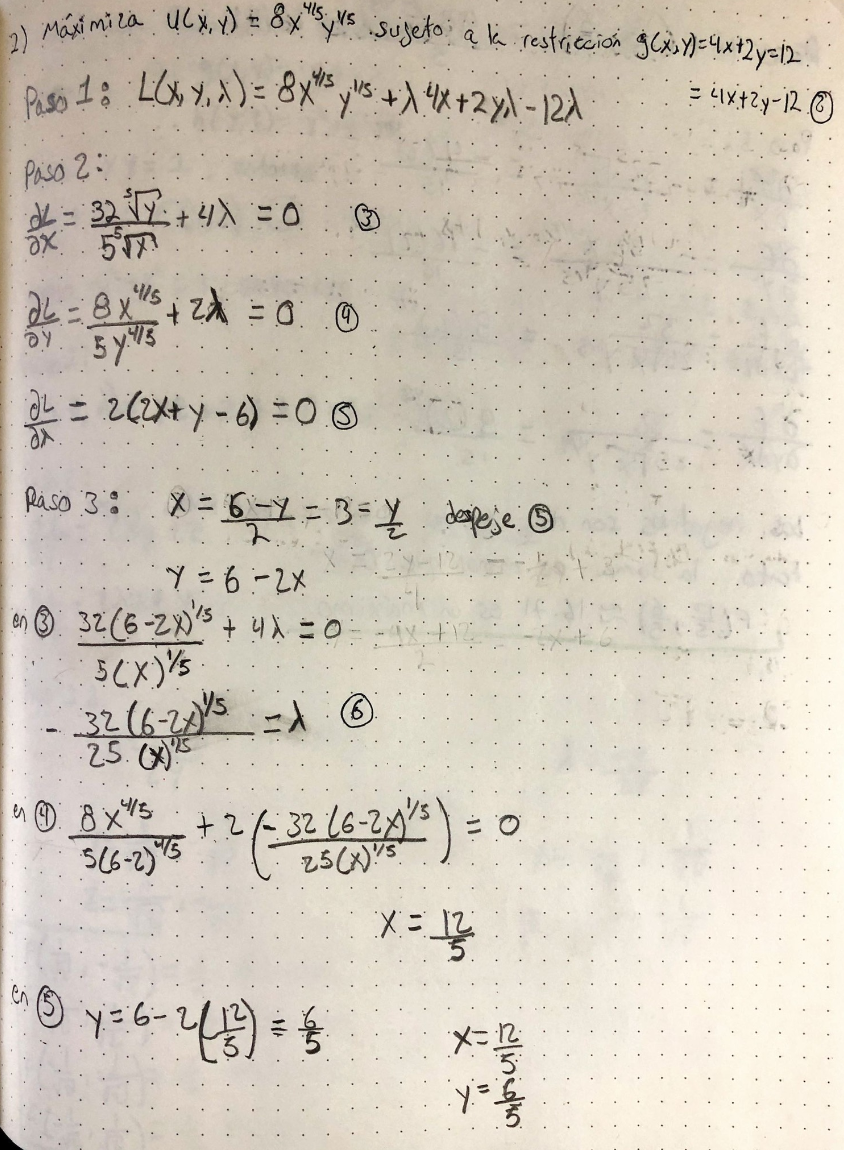 2) Máximiza U(x,y) = 8x^4/5 y^1/5 sujeto a la restricción g(x,y)=4x+2y=12
= 4x+2y-12 ②
Paso 1: L(x,y,λ) = 8x^4/5 y^1/5 + λ4x + 2yλ - 12λ
Paso 2:
∂L/∂x = 32 ⁵√y / 5 ⁵√x + 4λ = 0 ③
∂L/∂y = 8x^4/5 / 5y^4/5 + 2λ = 0 ④
∂L/∂λ = 2(2x + y - 6) = 0 ⑤
Paso 3: x = 6-y / 2 = 3 = y/2 despeje ⑤
y = 6 - 2x
en ③ 32(6-2x)^1/5 / 5(x)^1/5 + 4λ = 0
- 32(6-2x)^1/5 / 25 (x)^1/5 = λ ⑥
en ④ 8x^4/5 / 5(6-2)^4/5 + 2 (- 32(6-2x)^1/5 / 25(x)^1/5) = 0
x = 12/5
en ⑤ y = 6 - 2(12/5) = 6/5
x = 12/5
y = 6/5